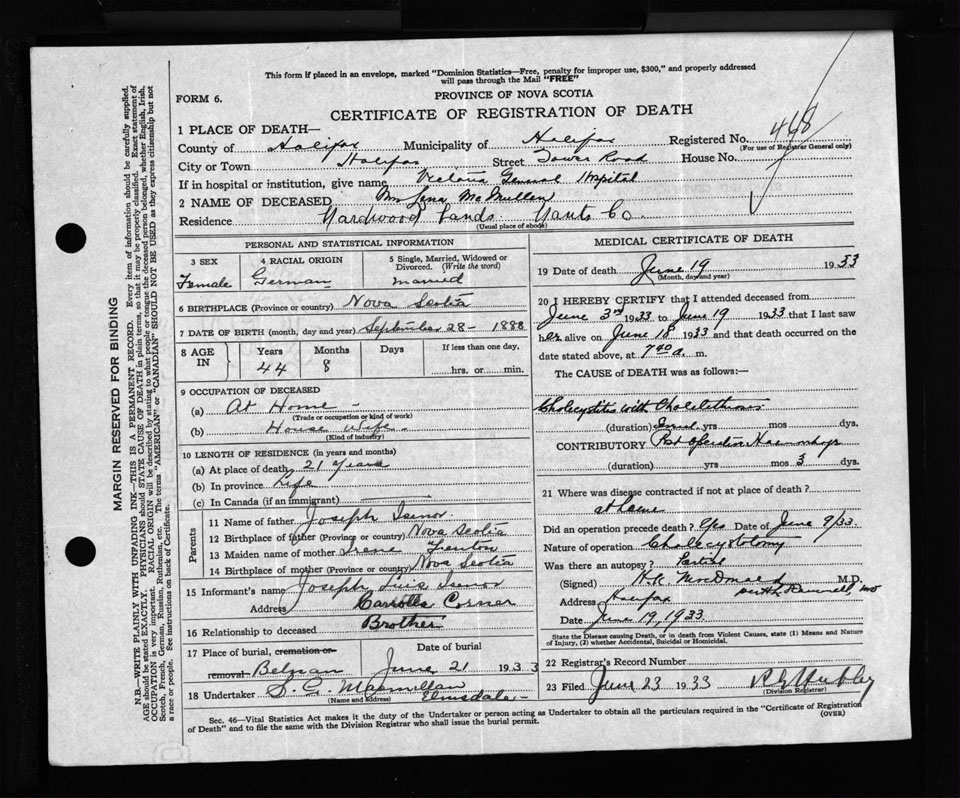 This form if placed in an envelope, marked "Dominion Statistics—Free, penalty for improper use, $300," and properly addressed
will pass through the Mail "FREE"
FORM 6.
PROVINCE OF NOVA SCOTIA
CERTIFICATE OF REGISTRATION OF DEATH
1 PLACE OF DEATH—
County of Halifax Municipality of Halifax Registered No. 468
(For use of Registrar General only)
City or Town Halifax Street Tower Road House No.
If in hospital or institution, give name Victoria General Hospital
2 NAME OF DECEASED Mrs Lena McMullen
Residence Hardwood Lands Hants Co.
(Usual place of abode)
PERSONAL AND STATISTICAL INFORMATION
3 SEX
Female
4 RACIAL ORIGIN
German
5 Single, Married, Widowed or
Divorced. (Write the word)
married
6 BIRTHPLACE (Province or country) Nova Scotia
7 DATE OF BIRTH (month, day and year) September 28 - 1888
8 AGE
IN
Years
44
Months
8
Days
If less than one day,
hrs. or min.
9 OCCUPATION OF DECEASED
(a) At Home -
(Trade or occupation or kind of work)
(b) House Wife
(Kind of industry)
10 LENGTH OF RESIDENCE (in years and months)
(a) At place of death 21 years
(b) In province Life
(c) In Canada (if an immigrant)
Parents
11 Name of father Joseph Isenor
12 Birthplace of father (Province or country) Nova Scotia
13 Maiden name of mother Irene Fenton
14 Birthplace of mother (Province or country) Nova Scotia
15 Informant's name Joseph Luis Isenor
Address Carrolls Corner
16 Relationship to deceased Brother
17 Place of burial, cremation or
removal Belnan
Date of burial
June 21 1933
18 Undertaker S. C. Macmillan
(Name and address) Elmsdale
MEDICAL CERTIFICATE OF DEATH
19 Date of death June 19 1933
(Month, day and year)
20 I HEREBY CERTIFY that I attended deceased from
June 3rd 1933 to June 19 1933 that I last saw
her alive on June 18 1933 and that death occurred on the
date stated above, at 7 40 a. m.
The CAUSE of DEATH was as follows:—
Cholecystitis with Cholelithiasis
(duration) yrs mos dys.
CONTRIBUTORY Post Operative Haemorrhage
(duration) yrs mos 3 dys.
21 Where was disease contracted if not at place of death?
at home
Did an operation precede death? Yes Date of June 9/33
Nature of operation Cholecystotomy
Was there an autopsy? Partial
(Signed) H.K. MacDonald M.D.
Address Halifax
Date June 19, 1933
State the Disease causing Death, or in death from Violent Causes, state (1) Means and Nature
of Injury, (2) whether Accidental, Suicidal or Homicidal.
22 Registrar's Record Number
23 Filed June 23 1933
(Division Registrar)
Sec. 46—Vital Statistics Act makes it the duty of the Undertaker or person acting as Undertaker to obtain all the particulars required in the "Certificate of Registration
of Death" and to file the same with the Division Registrar who shall issue the burial permit.
(OVER)
MARGIN RESERVED FOR BINDING
N.B.—WRITE PLAINLY WITH UNFADING INK—THIS IS A PERMANENT RECORD. Every item of information should be carefully supplied.
AGE should be stated EXACTLY. PHYSICIANS should STATE CAUSE OF DEATH in plain terms, so that it may be properly classified. Exact statement of
OCCUPATION is very important. RACIAL ORIGIN will be described by stating to what people or tongue the deceased person belonged, whether English, Irish,
Scotch, French, German, Russian, Ruthenian, etc. The terms "AMERICAN" or "CANADIAN" SHOULD NOT BE USED as they express citizenship but not
a race or people. See instructions on back of Certificate.